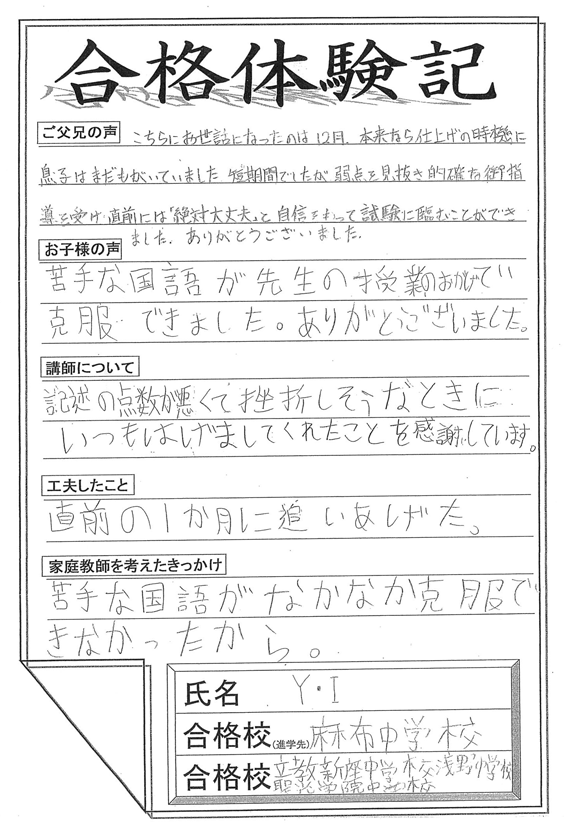 合格体験記
ご父兄の声
こちらにお世話になったのは12月、本来なら仕上げの時機に
息子はまだもがいていました 短期間でしたが弱点を見抜き的確な御指
導を受け、直前には「絶対大丈夫」と自信をもって試験に臨むことができ
ました。ありがとうございました。
お子様の声
苦手な国語が先生の授業のおかげで
克服できました。ありがとうございました。
講師について
記述の点数が悪くて挫折しそうなときに
いつもはげましてくれたことを感謝しています。
工夫したこと
直前の1か月に追いあげた。
家庭教師を考えたきっかけ
苦手な国語がなかなか克服で
きなかったから。
氏名 Y・I
合格校(進学先) 麻布中学校
合格校 立教新座中学校 浅野中学校
聖光学院中学校